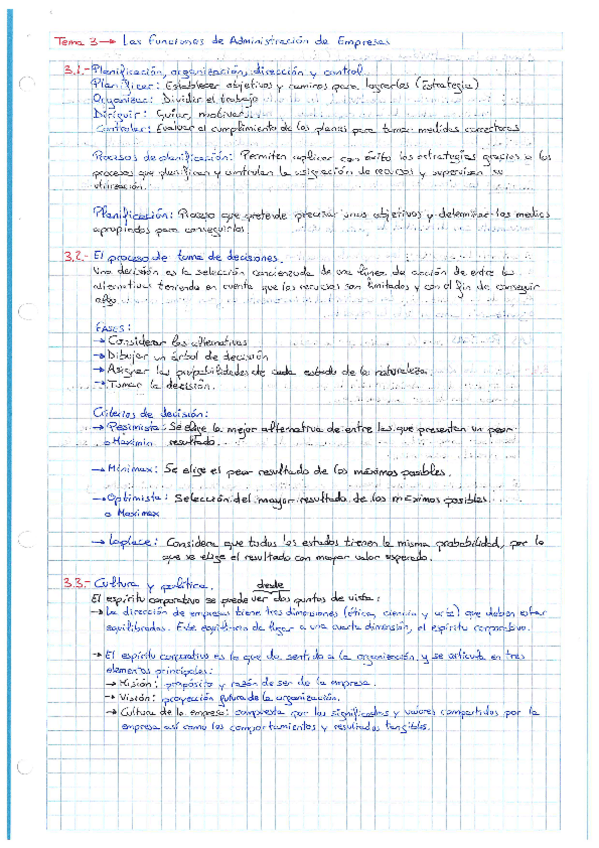 Tema 3 → Las Funciones de Administración de Empresas
3.1.- Planificación, organización, dirección y control
Planificar: Establecer objetivos y caminos para lograrlos (Estrategia)
Organizar: Dividir el trabajo
Dirigir: Guiar, motivar...
Controlar: Evaluar el cumplimiento de los planes para tomar medidas correctoras.
Procesos de planificación: Permiten aplicar con éxito las estrategias gracias a los
procesos que planifican y controlan la asignación de recursos y supervisan su
utilización.
Planificación: Proceso que pretende precisar unos objetivos y determinar los medios
apropiados para conseguirlos.
3.2.- El proceso de toma de decisiones.
Una decisión es la selección concienzuda de una línea de acción de entre las
alternativas teniendo en cuenta que los recursos son limitados y con el fin de conseguir
algo.
FASES:
→ Considerar las alternativas
→ Dibujar un árbol de decisión
→ Asignar las probabilidades de cada estado de la naturaleza.
→ Tomar la decisión.
Criterios de decisión:
→ Pesimista: Se elige la mejor alternativa de entre las que presentan un peor
o Maximin resultado.
→ Minimax: Se elige el peor resultado de los máximos posibles.
→ Optimista: Selección del mayor resultado de los máximos posibles
o Maximax
→ Laplace: Considera que todos los estados tienen la misma probabilidad, por lo
que se elige el resultado con mayor valor esperado.
3.3.- Cultura y política.
desde
El espíritu corporativo se puede ver dos puntos de vista:
→ La dirección de empresas tiene tres dimensiones (ética, ciencia y arte) que deben estar
equilibradas. Este equilibrio da lugar a una cuarta dimensión, el espíritu corporativo.
→ El espíritu corporativo es lo que da sentido a la organización, y se articula en tres
elementos principales:
→ Misión: propósito y razón de ser de la empresa.
→ Visión: proyección futura de la organización.
→ Cultura de la empresa: compuesta por los significados y valores compartidos por la
empresa así como los comportamientos y resultados tangibles.